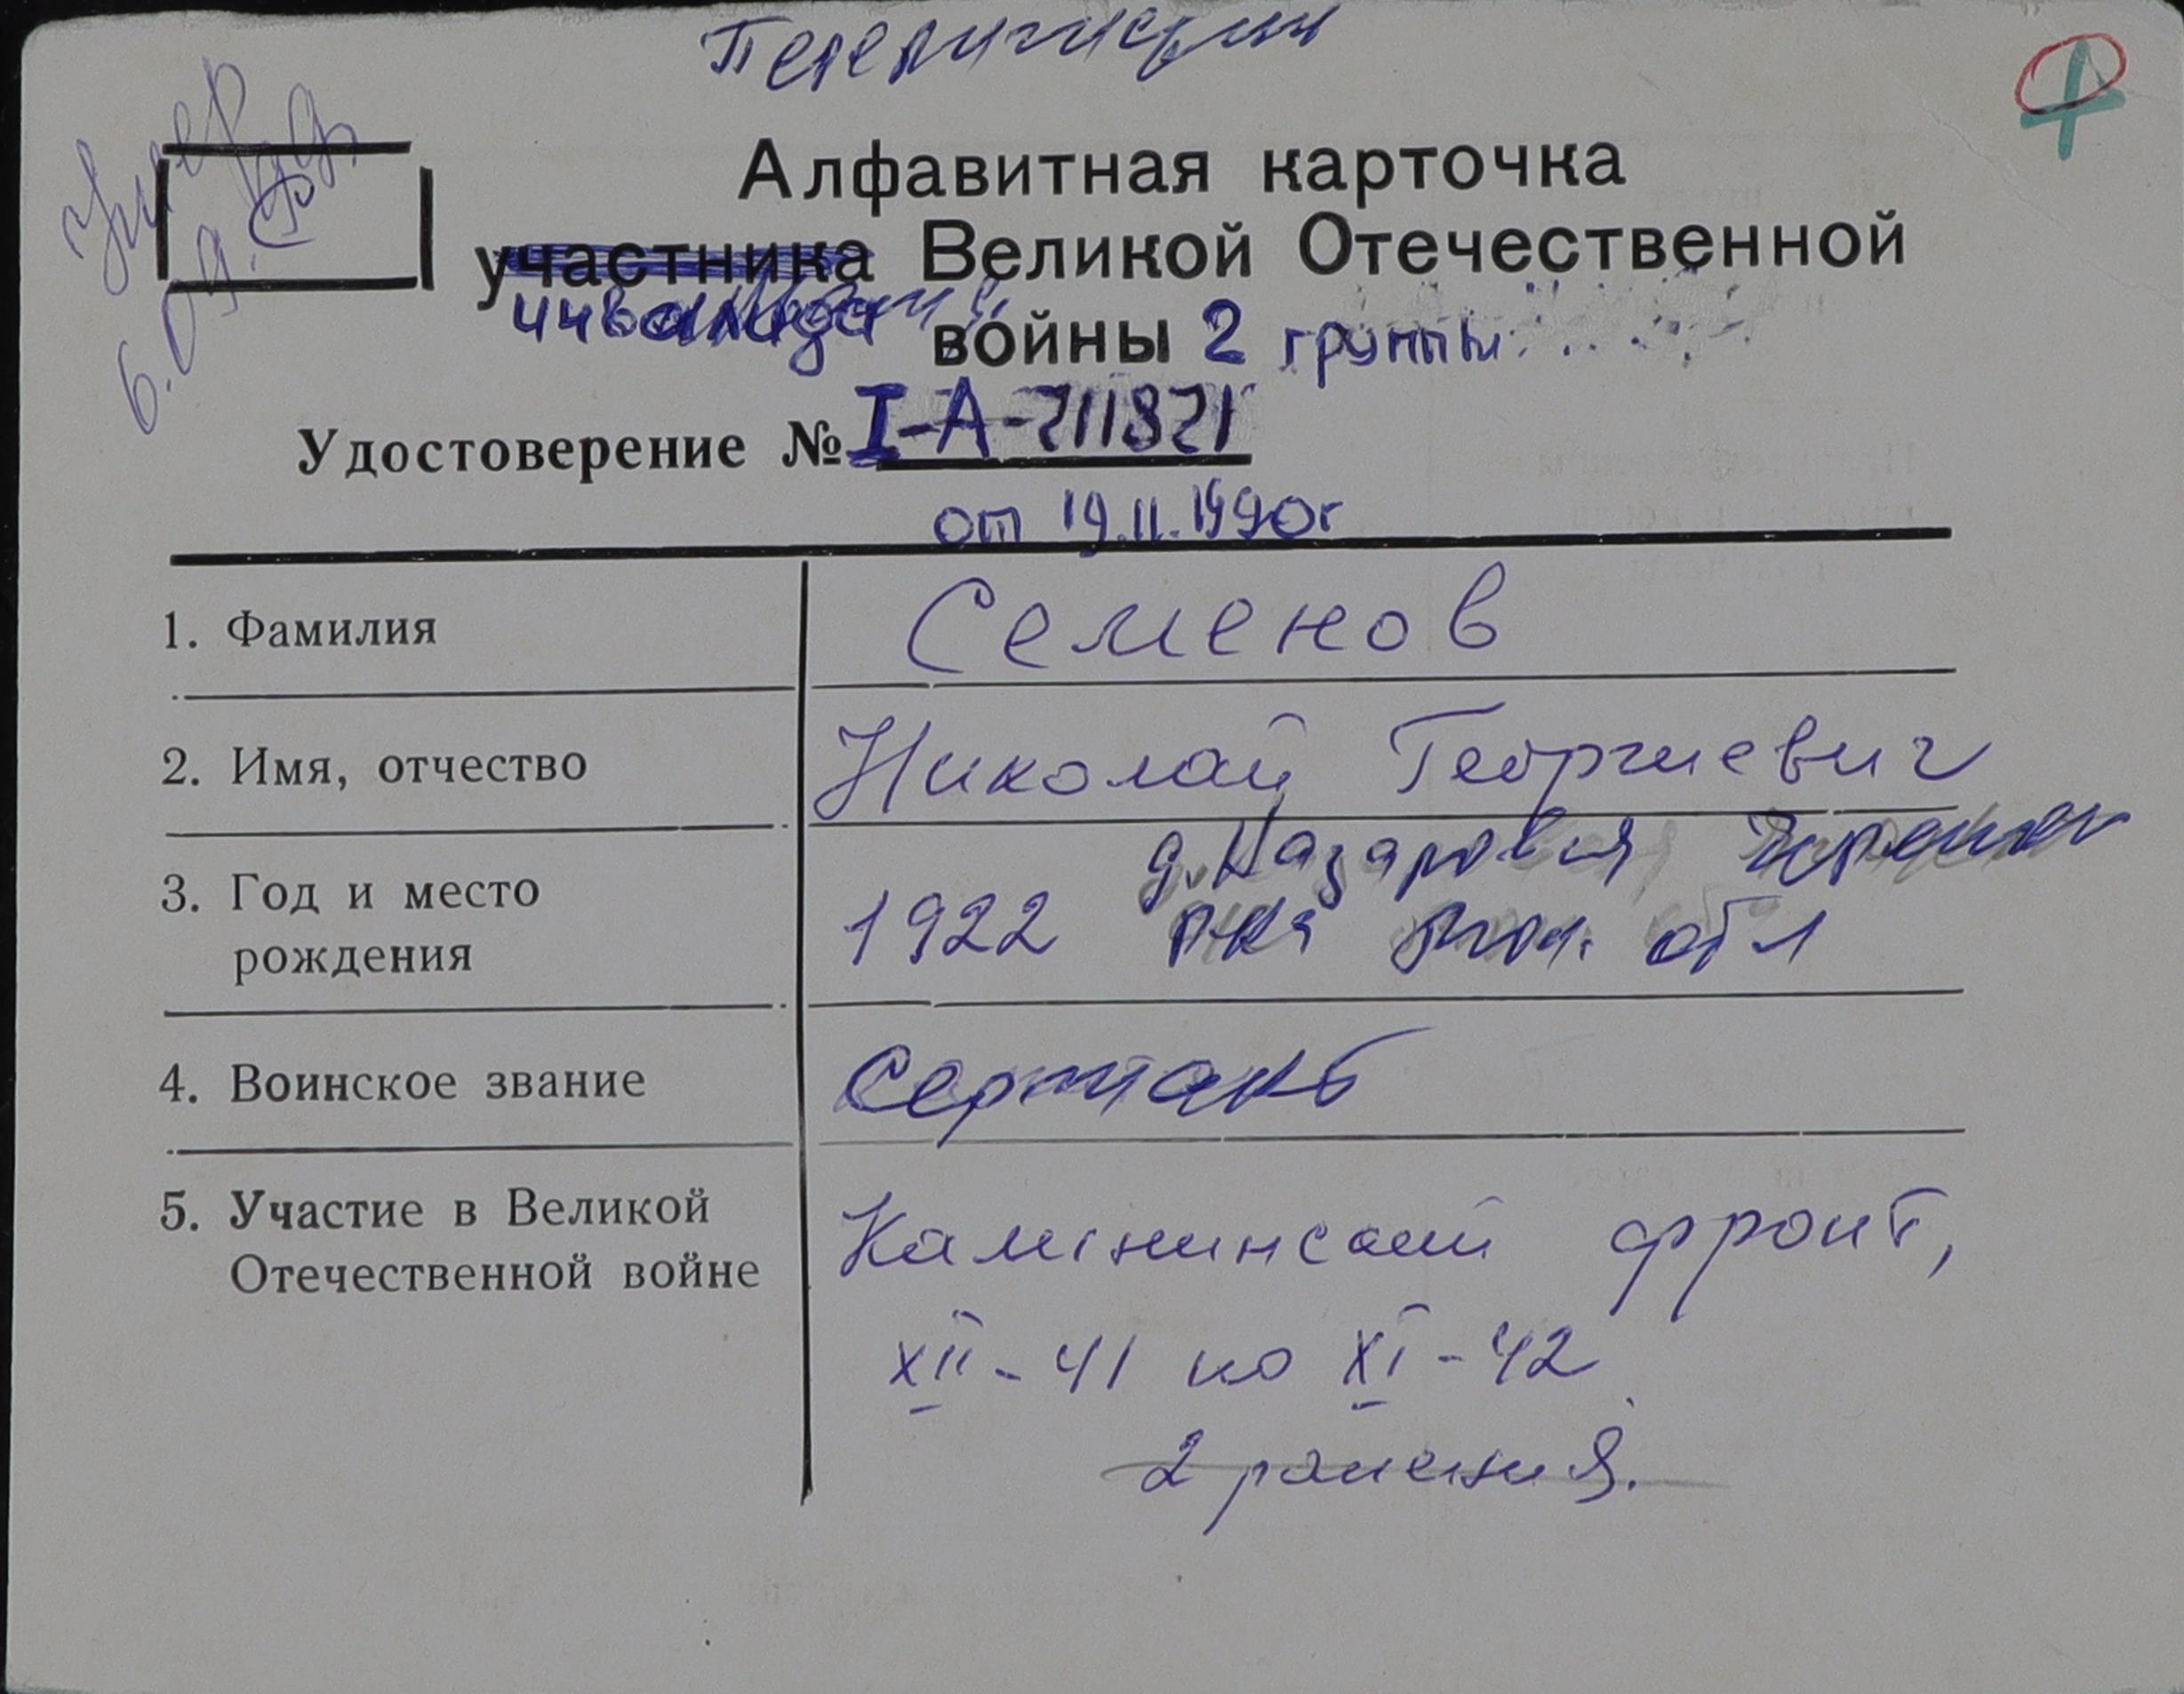 Умер
6.09.
Алфавитная карточка
участника Великой Отечественной
инвалида войны 2 группы
Удостоверение № I-А-711871
от 19.11.1990г
1. Фамилия Семенов
2. Имя, отчество Николай Георгиевич
3. Год и место рождения 1922 д. Назаровка
р-на обл
4. Воинское звание Сержант
5. Участие в Великой Отечественной войне Калининский фронт,
XII-41 по XI-42
2 ранения.